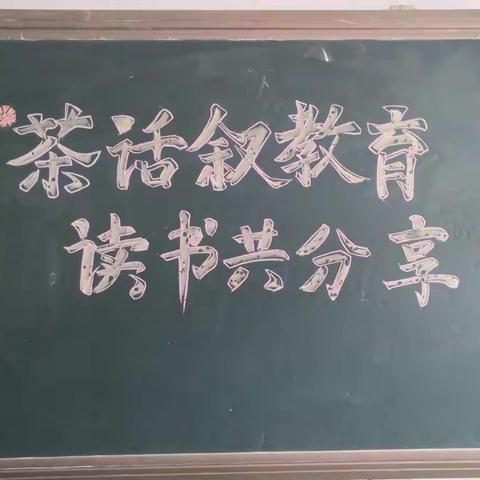 茶话叙教育
读书共分享